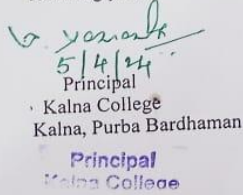 5/4/24
Principal
Kalna College
Kalna, Purba Bardhaman
Principal
Kalna College